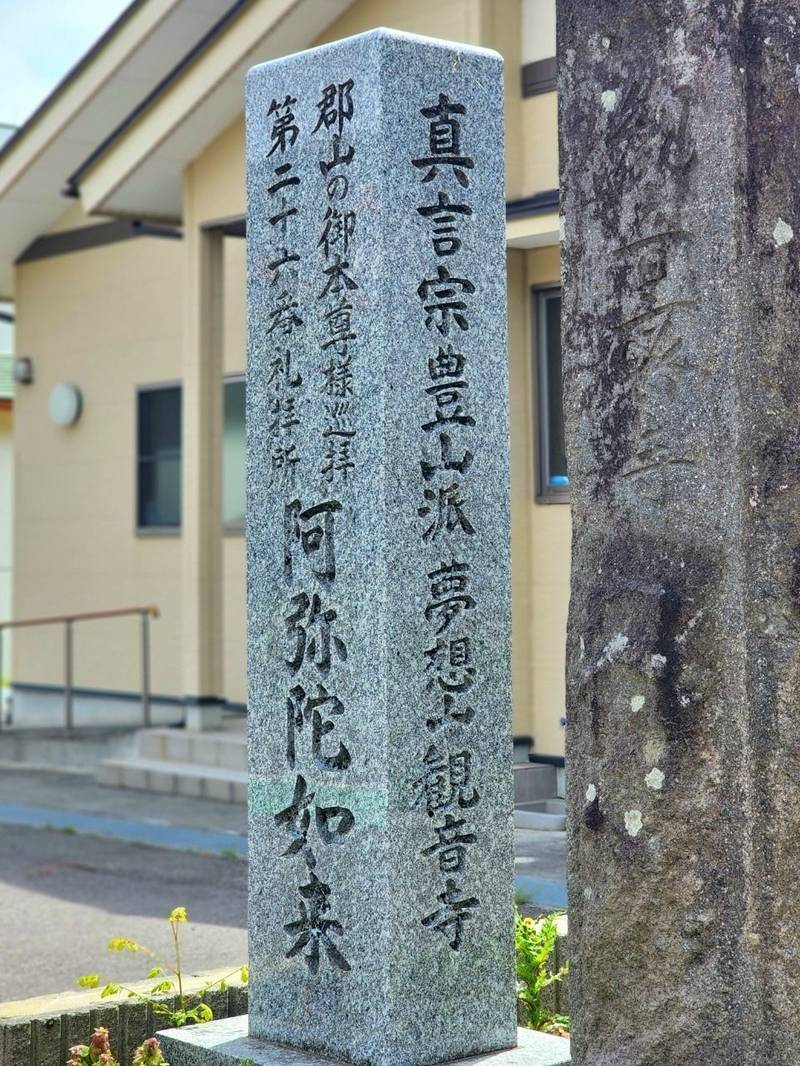 真言宗豊山派夢想山観音寺
郡山の御本尊様巡拝
第二十六番礼拝所
阿弥陀如来
観音寺